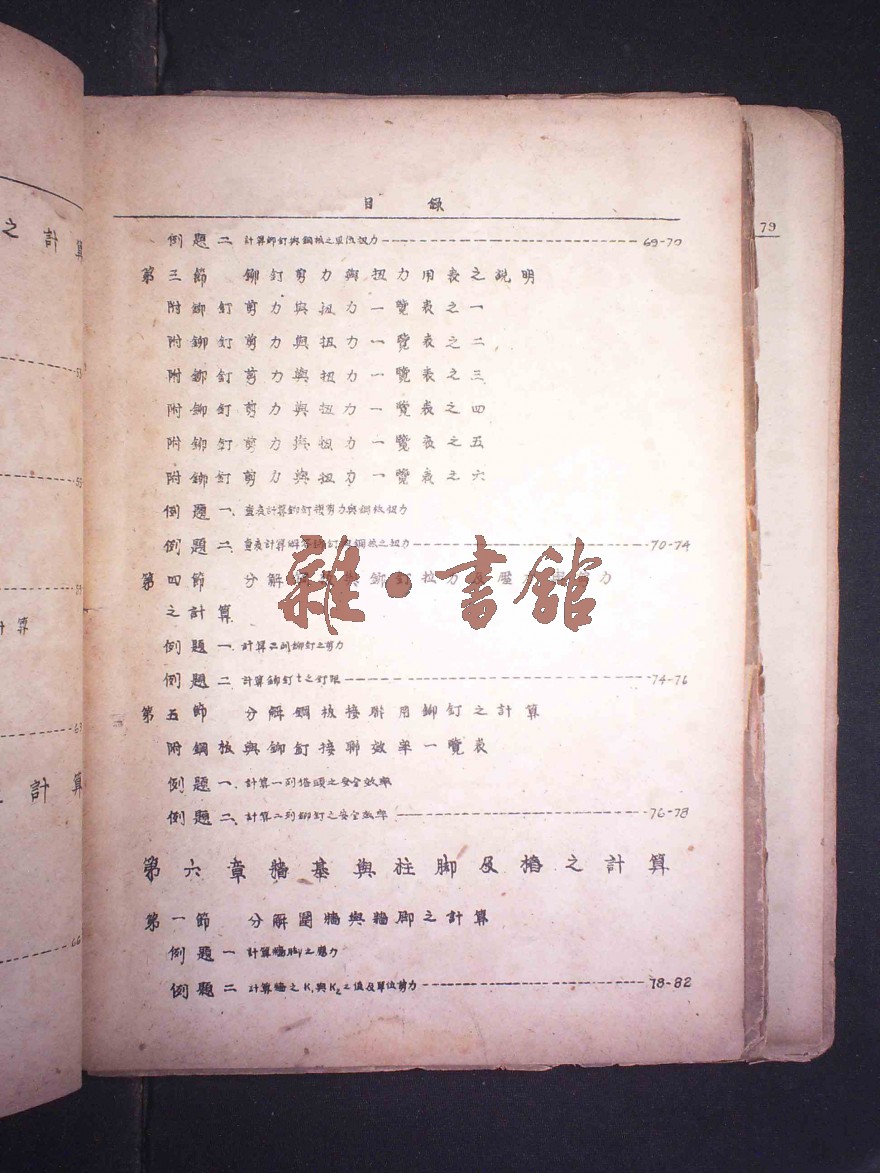 目 錄
例題二 計算鉚釘與鋼板之單位扭力 69-70
第三節 鉚釘剪力與扭力用表之說明
附鉚釘剪力與扭力一覽表之一
附鉚釘剪力與扭力一覽表之二
附鉚釘剪力與扭力一覽表之三
附鉚釘剪力與扭力一覽表之四
附鉚釘剪力與扭力一覽表之五
附鉚釘剪力與扭力一覽表之六
例題一、查表計算鉚釘 剪力與鋼板扭力
例題二、查表計算 鋼板之扭力 70-74
第四節 分解 與鉚釘拉力及壓 力
之計算
例題一 計算 鉚釘之剪力
例題二 計算鉚釘t之釘限 74-76
第五節 分解鋼板接聯用鉚釘之計算
附鋼板與鉚釘接聯效率一覽表
例題一、計算一列搭頭之安全效率
例題二、計算二列鉚釘之安全效率 76-78
第六章牆基與柱脚及樁之計算
第一節 分解圍牆與牆脚之計算
例題一 計算牆脚之應力
例題二 計算牆之K₁與K₂之值及單位剪力 78-82
雜·書館
79
之計算
53
計算
63
計算
66